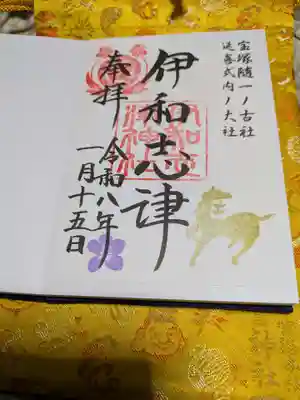 宝塚随一ノ古社
延喜式内ノ大社
伊和志津
奉拝
令和八年
一月十五日